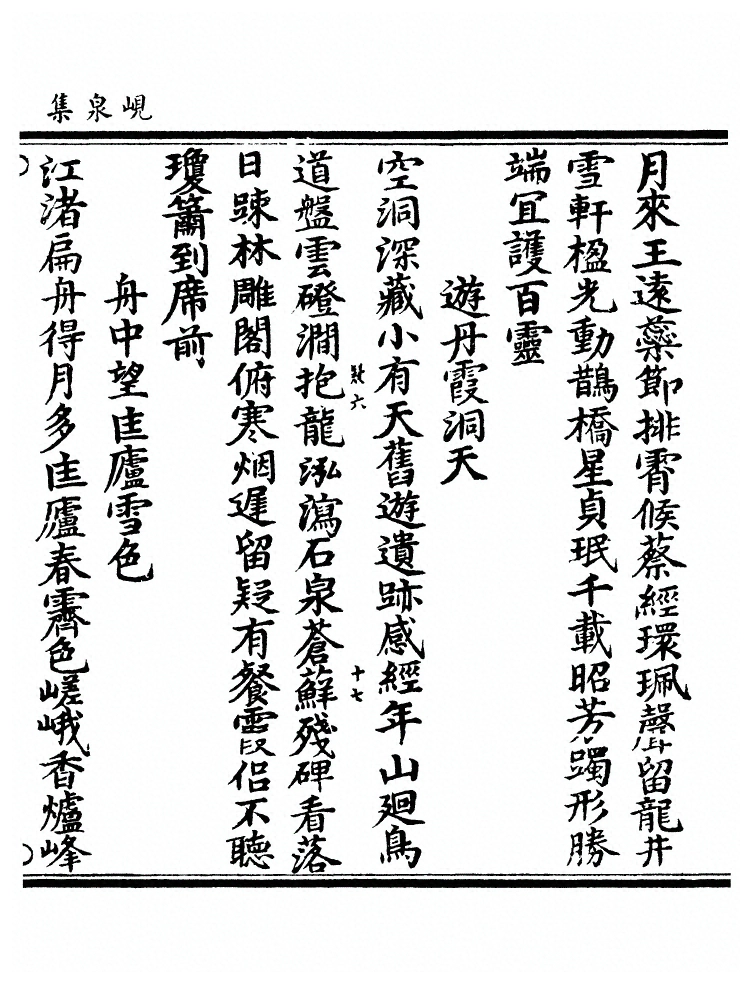 峴泉集
月來王遠蘂節排霄候蔡經環珮聲留龍井
雪軒楹光動鵲橋星貞珉千載昭芳躅形勝
端宜護百靈
遊丹霞洞天
空洞深藏小有天舊遊遺跡感經年山廻鳥
㱕六
十七
道盤雲磴澗抱龍泓瀉石泉蒼蘚殘碑看落
日踈林雕閣俯寒烟遲留疑有餐霞侣不聽
瓊簫到席前
舟中望匡廬雪色
江渚扁舟得月多匡廬春霽色嵯峨香爐峰